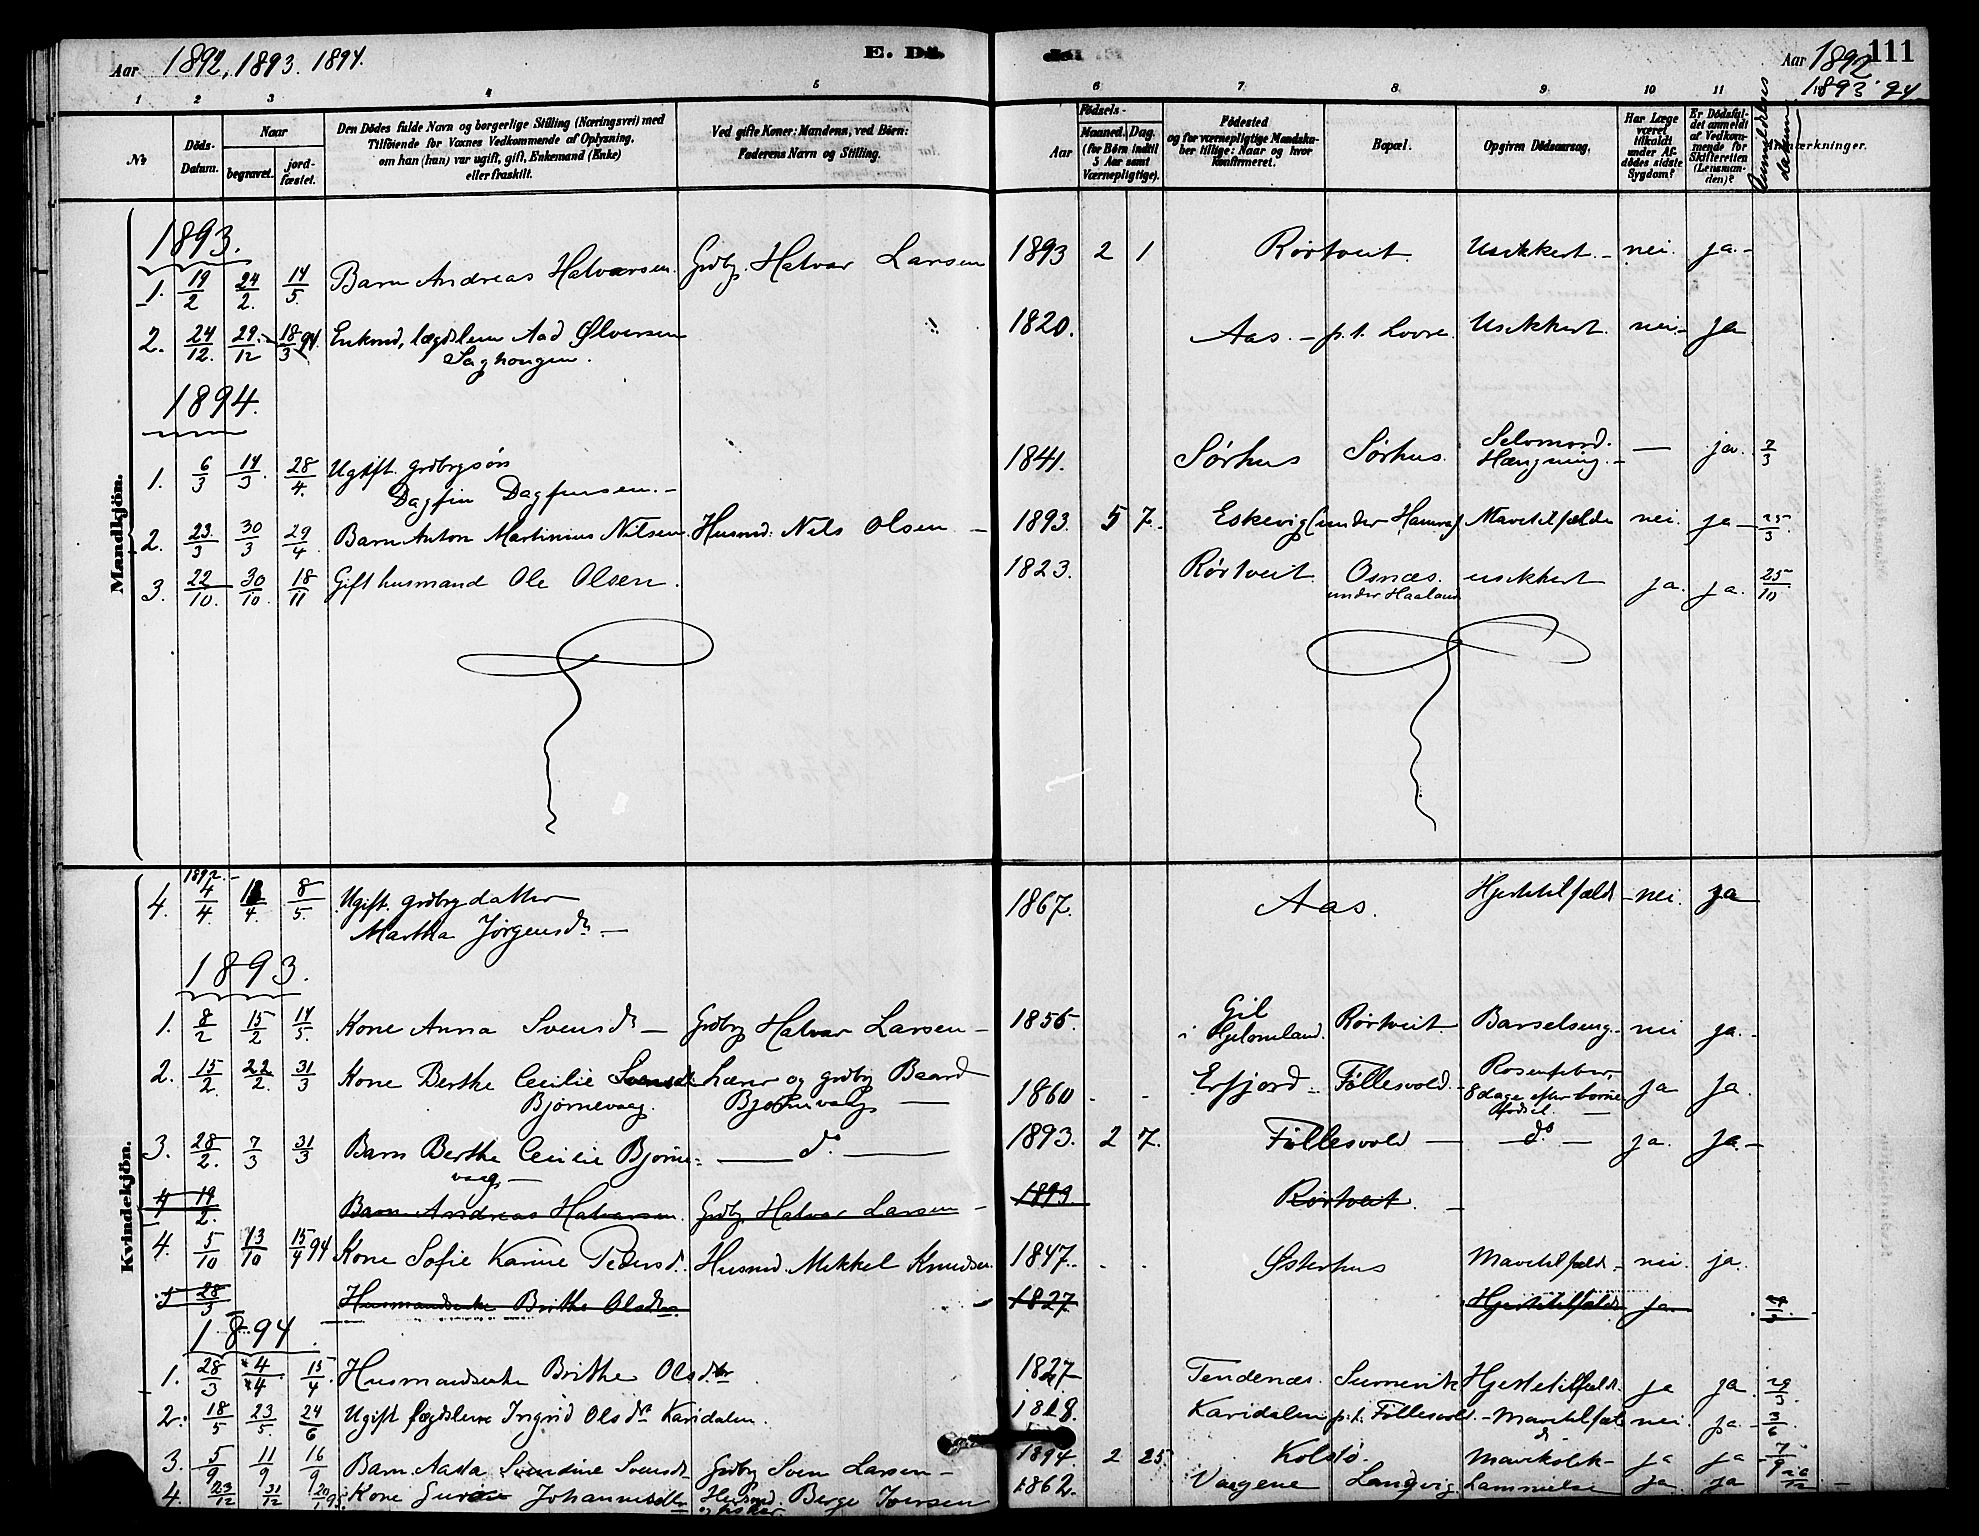 Aar 1892, 1893. 1894. E. Dö-
dei Aar 1892 111
1893. 94.
1 2 3 4 5 6 7 8 9 10 11
No Döds-Datum. Naar begravet. jord-fæstet. Den Dödes fulde Navn og borgerlige Stilling (Næringsvei) med Tilföiende for Voxnes Vedkommende af Oplysning, om han (hun) var ugift, gift, Enkemand (Enke) eller fraskilt. Ved gifte Koner: Mandens, ved Börn: Faderens Navn og Stilling. Födsels- Aar Maaned. Dag. (for Börn indtil 5 Aar samt Værnepligtige). Födested og for værnepligtige Mandskaber tillige: Naar og hvor konfirmeret. Bopæl. Opgiven Dödsaarsag. Har Læge været tilkaldt under Afdödes sidste Sygdom? Er Dödsfaldet anmeldt af Vedkommende for Skifteretten (Lensmanden)? Anmeldelses datum Anmærkninger.
Mandkjön.
1893.
1. 19/2 24/2. 14/5. Barn Andreas Halvarsen. Grdbg. Halvar Larsen 1893 2 1 Rørtveit. Usikkert.- nei. ja.-
2. 24/12. 29/12 18/3 94. Enkmd, lægdslem Aad Ølversen 1820. Aas. - p. t. Lovra. Usikkert. nei- ja
Saghougen.
1894.
1. 6/3 14/3. 28/4. Ugift. grdbrgsøn 1841. Sørhus Sørhus. Selvmord. — ja. 7/3
Dagfin Dagfinsen.- Hængning.-
2. 23./3 30/3 29/4 Barn Anton Martinius Nilsen. Husmd. Nils Olsen - 1893. 5 7. Eskevig (under Hamra) Mavetilfælde nei. ja- 25/3
3. 22/10. 30/10. 18/11 Gift husmand Ole Olsen. 1823. Rørtveit Osnæs. usikkert ja. ja. 25/10
under Haaland
Kvindekjön.
1892.-
4. 4/4 /4. 8/5. Ugift. grdbrgdatter 1867. Aas. Hjertetilfælde - nei. ja
Martha Jørgensdr -
1893.
1. 8/2 15/2 14/5. Kone Anna Svensdr - Grdbrg Halvar Larsen - 1855. Gil Rørtveit Barselseng- nei ja.-
i Hjelmeland.
2. 15/2. 22/2. 31/3 Kone Berthe Cecilie Lærer og grdbrg Baard 1860 - - Erfjord. Føllesvold.- Rosenfeber, ja ja.
Bjørnevaag. Bjørnevaag - 8 dage efter børne
fødsel. -
3. 28/2. 7/3 31/3 Barn Berthe Cecilie Bjørne= — do. — 1893. 2 7. Føllesvold - - do - ja. ja.-
vaag -
4 19/2. Barn Andreas Halvarsen. Grdbg. Halvar Larsen - 1893 Rørtveit. -
4. 5/10 13/10 15/4 94 Kone Sofie Karine Pedersd. Husmd. Mikkel Knudsen. 1847. . . Østerhus Mavetilfælde - nei. ja.
5 28/3 Husmandsenke Brithe Olsdtr - 1827 Hjertetilfælde ja
1894.
1. 28/3 4/4 15/4. Husmandsenke Brithe Olsdtr 1827 Tendenæs. Hjertetilfælde. ja ja. 29/3.
2. 18/5 23/5. 24/6 Ugift lægdslem Ingrid Olsdr Karidalen. 1818. Karidalen p. t. Føllesvold.- Mavetilfæl nei ja - 3/6
d
3. 5/9 11/9 16/9 Barn Aasta Svendine Svensdr Grdbrg Sven Larsen - 1894 2 25. Kolstø. Mavekolik- ja ja - 7/9
4. 23/12 31/12 20/1 95. Kone Johannesdtr Husmd. Berge Iversen 1862. Vaagene Landvig. Lammelse ja. ja -